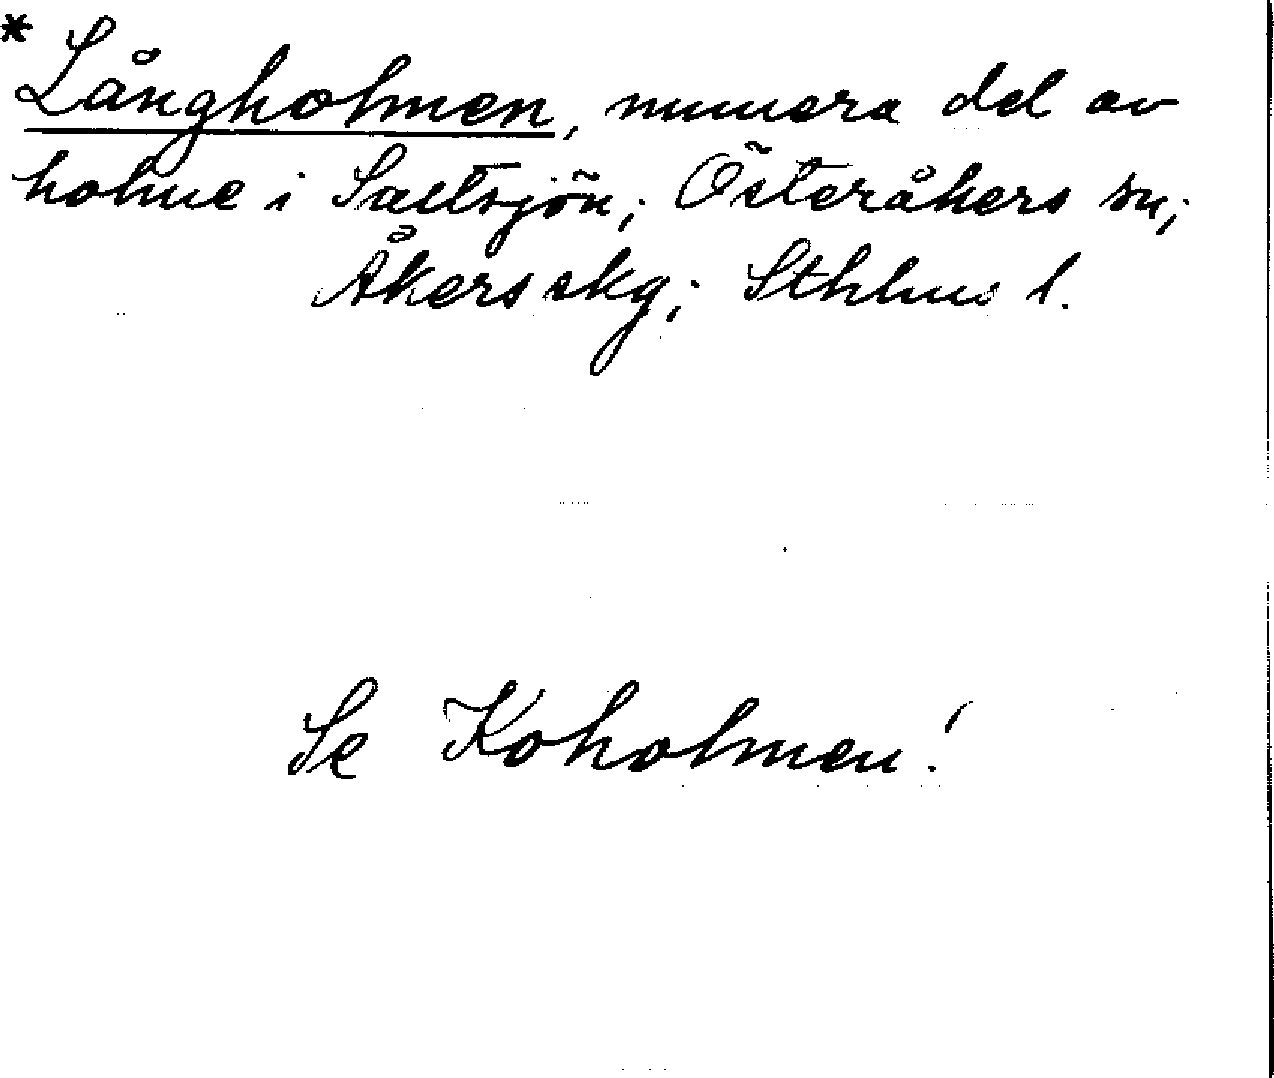 * Långholmen, numera del av
holme i Saltsjön; Österåkers sn;
Åkers skg; Sthlms l.
Se Koholmen!